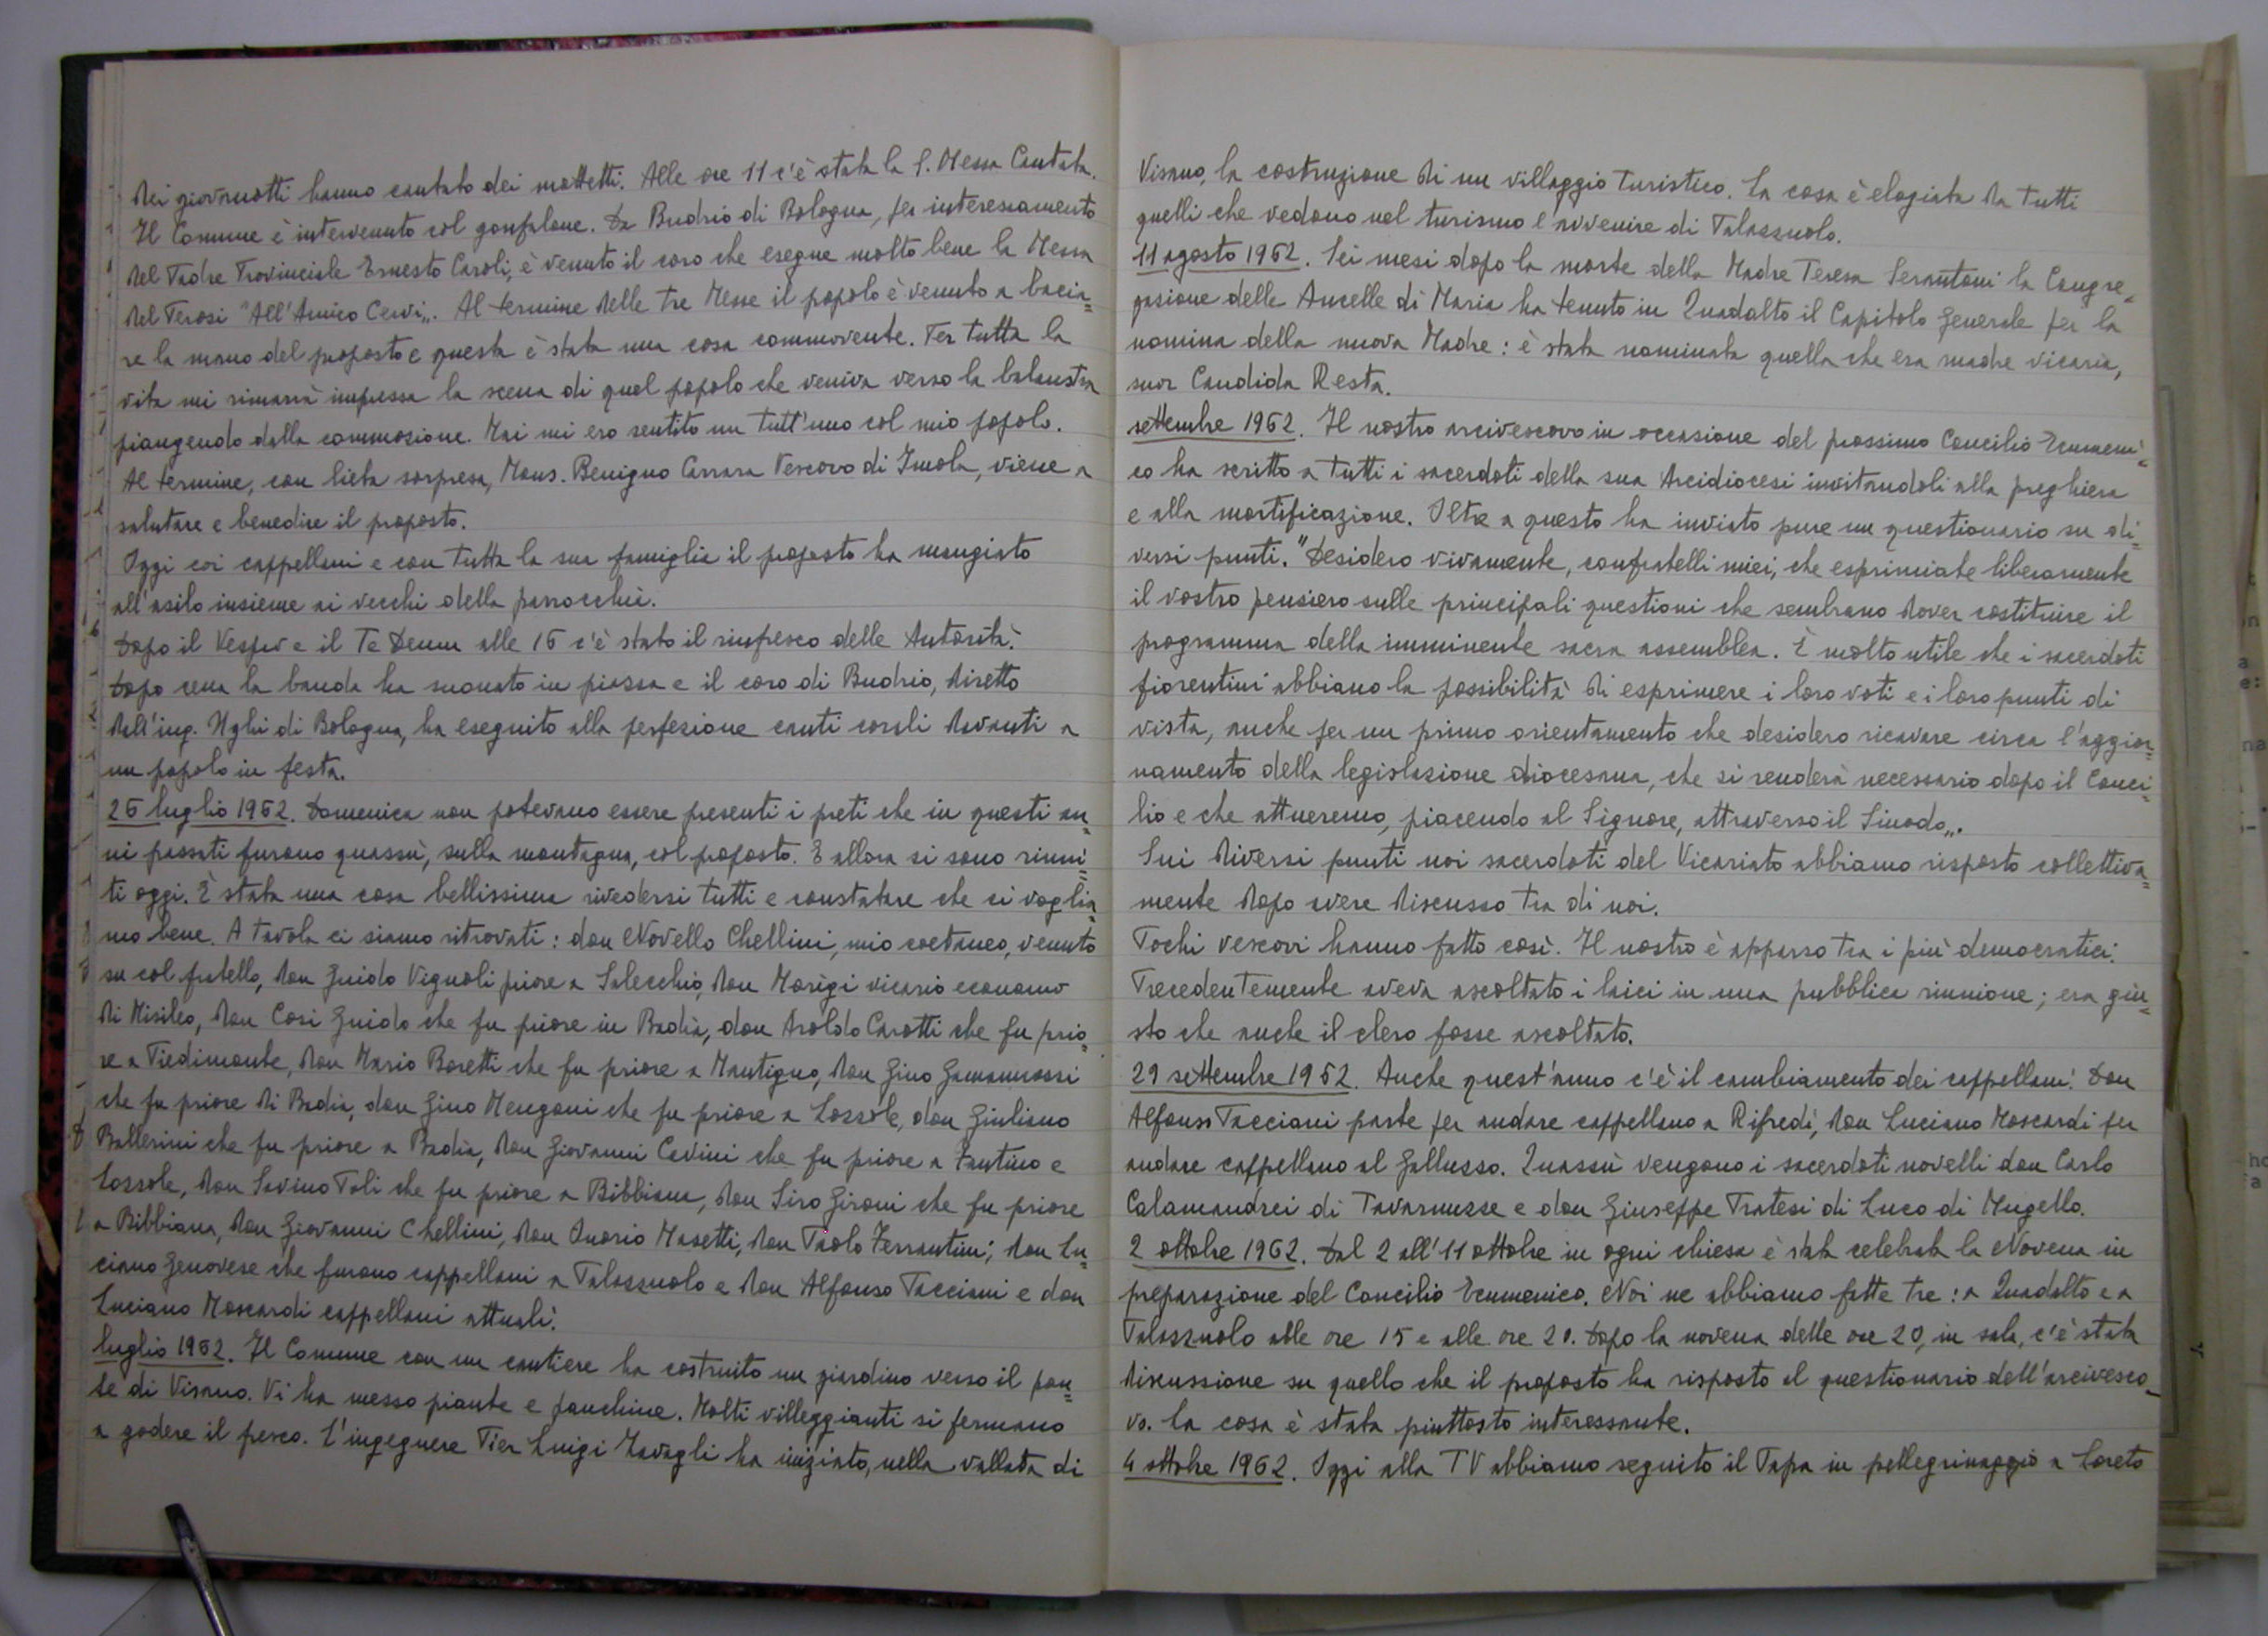 dei giovanotti hanno cantato dei mottetti. Alle ore 11 c'è stata la S. Messa Cantata.
Il Comune è intervenuto col gonfalone. Da Budrio di Bologna, per interessamento
del Padre Provinciale Ernesto Caroli, è venuto il coro che esegue molto bene la Messa
del Perosi "All'Amico Cervi„. Al termine delle tre Messe il popolo è venuto a bacia=
re la mano del proposto e questa è stata una cosa commovente. Per tutta la
vita mi rimarrà impressa la scena di quel popolo che veniva verso la balaustra
piangendo dalla commozione. Mai mi ero sentito un tutt'uno col mio popolo.
Al termine, con lieta sorpresa, Mons. Benigno Carrara Vescovo di Imola, viene a
salutare e benedire il proposto.
Oggi coi cappellani e con tutta la sua famiglia il proposto ha mangiato
all'asilo insieme ai vecchi della parrocchia.
Dopo il Vespro e il Te Deum alle 16 c'è stato il rinfresco delle Autorità.
Dopo cena la banda ha suonato in piazza e il coro di Budrio, diretto
dall'ing. Ughi di Bologna, ha eseguito alla perfezione canti corali davanti a
un popolo in festa.
26 luglio 1962. Domenica non potevano essere presenti i preti che in questi an=
ni passati furono quassù, sulla montagna, col proposto. E allora si sono riuni=
ti oggi. È stata una cosa bellissima rivedersi tutti e constatare che ci voglia=
mo bene. A tavola ci siamo ritrovati: don Novello Chellini, mio coetaneo, venuto
su col fratello, don Guido Vignoli priore a Salecchio, don Marigi vicario economo
di Misileo, don Cosi Guido che fu priore in Badia, don Aroldo Carotti che fu prio=
re a Piedimonte, don Mario Boretti che fu priore a Mantigno, don Gino Gamannossi
che fu priore di Badia, don Gino Mengoni che fu priore a Lozzole, don Giuliano
Ballerini che fu priore a Badia, don Giovanni Cavini che fu priore a Fantino e
Lozzole, don Savino Poli che fu priore a Bibbiana, don Siro Gironi che fu priore
a Bibbiana, don Giovanni Chellini, don Onorio Masetti, don Paolo Ferrantini, don Lu=
ciano Genovese che furono cappellani a Palazzuolo e don Alfonso Pacciani e don
Luciano Moscardi cappellani attuali.
luglio 1962. Il Comune con un cantiere ha costruito un giardino verso il pon=
te di Visano. Vi ha messo piante e panchine. Molti villeggianti si fermano
a godere il fresco. L'ingegnere Pier Luigi Zavagli ha iniziato, nella vallata di
Visano, la costruzione di un villaggio turistico. La cosa è elogiata da tutti
quelli che vedono nel turismo l'avvenire di Palazzuolo.
11 agosto 1962. Sei mesi dopo la morte della Madre Teresa Serantoni la Congre=
gazione delle Ancelle di Maria ha tenuto in Quadalto il Capitolo Generale per la
nomina della nuova Madre: è stata nominata quella che era madre vicaria,
suor Candida Resta.
settembre 1962. Il nostro arcivescovo in occasione del prossimo Concilio Ecumeni=
co ha scritto a tutti i sacerdoti della sua Arcidiocesi invitandoli alla preghiera
e alla mortificazione. Oltre a questo ha inviato pure un questionario su di=
versi punti. "Desidero vivamente, confratelli miei, che esprimiate liberamente
il vostro pensiero sulle principali questioni che sembrano dover costituire il
programma della imminente sacra assemblea. È molto utile che i sacerdoti
fiorentini abbiano la possibilità di esprimere i loro voti e i loro punti di
vista, anche per un primo orientamento che desidero ricavare circa l'aggior=
namento della legislazione diocesana, che si renderà necessario dopo il Conci=
lio e che attueremo, piacendo al Signore, attraverso il Sinodo„.
Sui diversi punti noi sacerdoti del Vicariato abbiamo risposto collettiva=
mente dopo avere discusso tra di noi.
Pochi vescovi hanno fatto così. Il nostro è apparso tra i più democratici.
Precedentemente aveva ascoltato i laici in una pubblica riunione; era giu=
sto che anche il clero fosse ascoltato.
29 settembre 1962. Anche quest'anno c'è il cambiamento dei cappellani. Don
Alfonso Pacciani parte per andare cappellano a Rifredi, don Luciano Moscardi per
andare cappellano al Galluzzo. Quassù vengono i sacerdoti novelli don Carlo
Calamandrei di Tavarnuzze e don Giuseppe Pratesi di Luco di Mugello.
2 ottobre 1962. Dal 2 all'11 ottobre in ogni chiesa è stata celebrata la Novena in
preparazione del Concilio Ecumenico. Noi ne abbiamo fatte tre: a Quadalto e a
Palazzuolo alle ore 15 e alle ore 20. Dopo la novena delle ore 20, in sala, c'è stata
discussione su quello che il proposto ha risposto al questionario dell'arcivesco=
vo. La cosa è stata piuttosto interessante.
4 ottobre 1962. Oggi alla TV abbiamo seguito il Papa in pellegrinaggio a Loreto